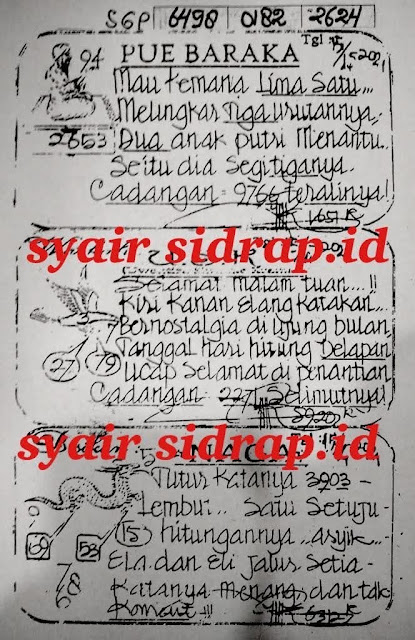 SGP 6498 0182 2624
Tgl 15/1-2021
94 PUE BARAKA
Mau kemana Lima Satu...
Melungkar Tiga urutannya,
2653 Dua anak putri Menantu.
Seitu dia Segitiganya.
Cadangan = 9766 teralinya!
1651 K
syair sidrap.id
Selamat malam tuan....!!
Kiri Kanan Elang Katakan...
Bernostalgia di Ujung bulan
Tanggal Hari hitung Delapan
27 79 Ucap Selamat di penantian
Cadangan = 2271 Selimutnya!
syair sidrap.id
Tutur Katanya 3903 -
Lembur.. Satu Setuju-
15 hitungannya.. asyik
53
Ela dan Eli jalur Setia-
Katanya Menang dan tak